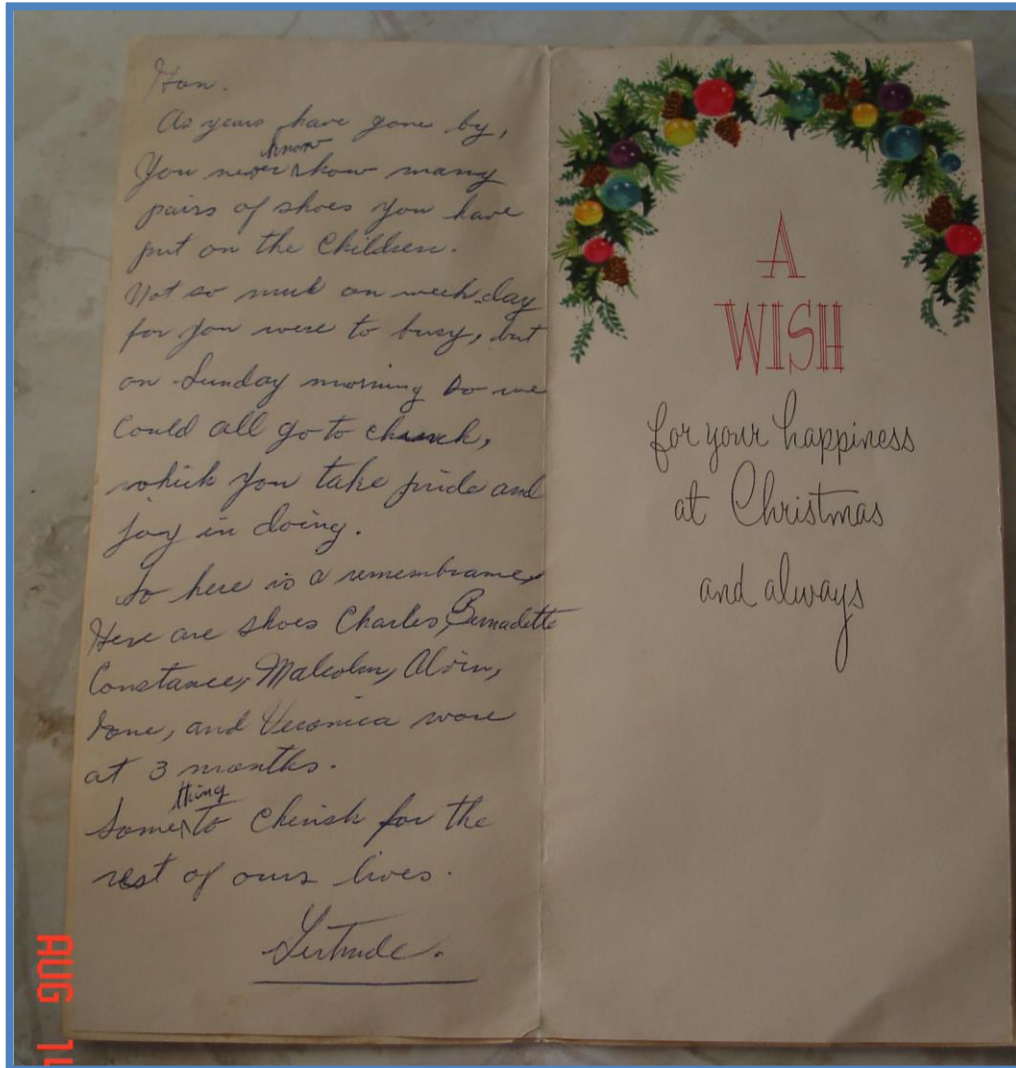 Hon.
As years have gone by,
You never know how many
pairs of shoes you have
put on the Children.
Not so much on week day
for you were to busy, but
on Sunday morning so we
Could all go to church,
which you take pride and
joy in doing.
So here is a remembrance,
Here are shoes Charles, Bernadette
Constance, Malcolm, Alvin,
Ione, and Veronica wore
at 3 months.
Something to Cherish for the
rest of ours lives.
Gertrude.
A
WISH
for your happiness
at Christmas
and always
AUG 14